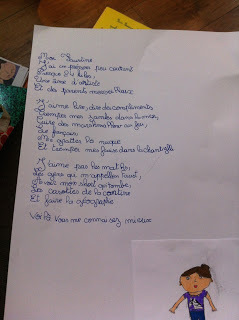 Moi Faustine
J'ai un prénom peu courant
Une âme d'artiste
Et des parents merveilleux
J'aime lire, dire des compliments,
Tremper mes jambes dans la mer,
Faire des marshmallow au feu,
Le français,
Me gratter la nuque
Et tremper mes fraises dans la chantilly
J'aime pas les maths,
Les gens qui m'appellent
Avoir mon short qui tombe,
Les carottes de la cantine
Et faire la géographie
Voilà vous me connaissez mieux